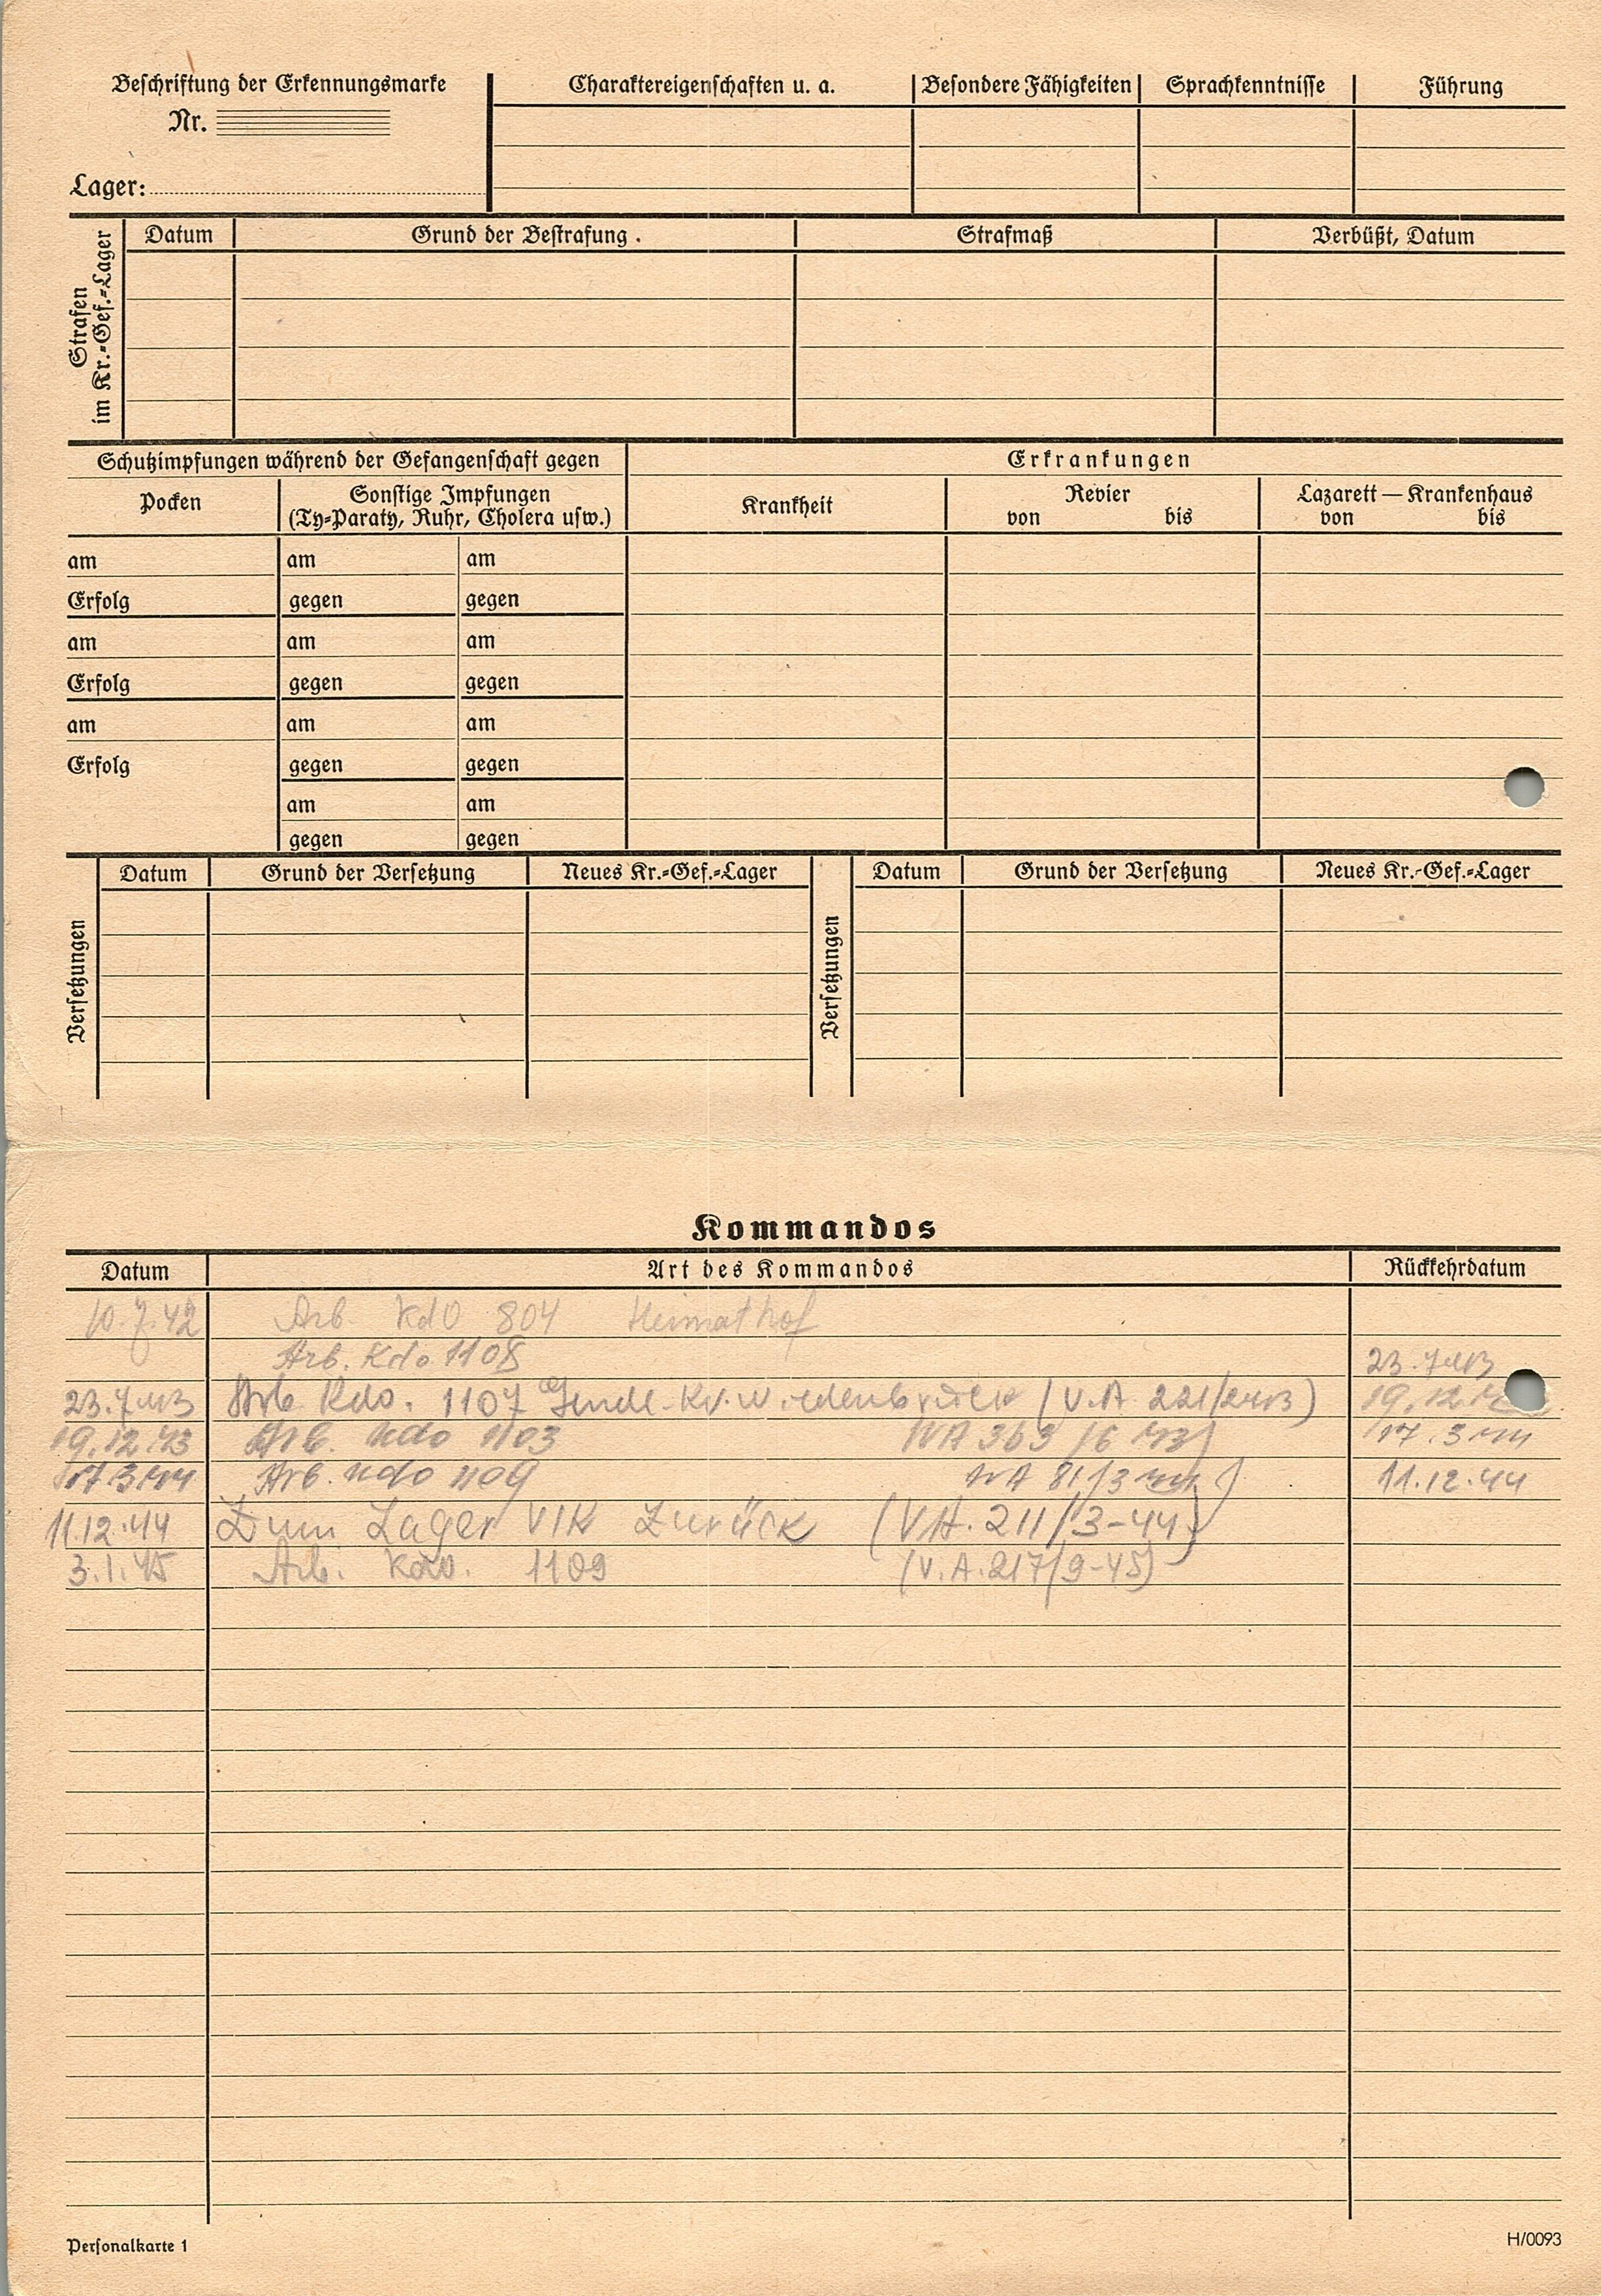 Beschriftung der Erkennungsmarke
Nr.
Lager:
Charaktereigenschaften u. a. Besondere Fähigkeiten Sprachkenntnisse Führung
Strafen
im Kr.-Gef.-Lager
Datum Grund der Bestrafung . Strafmaß Verbüßt, Datum
Schutzimpfungen während der Gefangenschaft gegen Erkrankungen
Pocken Sonstige Impfungen
(Ty-Paraty, Ruhr, Cholera usw.)
Krankheit Revier Lazarett — Krankenhaus
von bis von bis
am am am
Erfolg gegen gegen
am am am
Erfolg gegen gegen
am am am
Erfolg gegen gegen
am am
gegen gegen
Versetzungen
Datum Grund der Versetzung Neues Kr.-Gef.-Lager
Versetzungen
Datum Grund der Versetzung Neues Kr.-Gef.-Lager
Kommandos
Datum Art des Kommandos Rückkehrdatum
10.7.42 Arb. Kdo 804 Heimathof
Arb. Kdo 1108 23.7.43
23.7.43 Arb Kdo. 1107 Wiedenbrück (V.A. 221/2 43) 19.12.
19.12.43 Arb. Kdo 1103 VA 363/6 43) 17.3 44
17.3 44 Arb. Kdo 1109 VA 81/3 44) 11.12.44
11.12.44 Zum Lager VIK Zurück (VA. 211/3-44)
3.1.45 Arb. Kdo. 1109 (V.A.217/9-45)
Personalkarte 1 H/0093